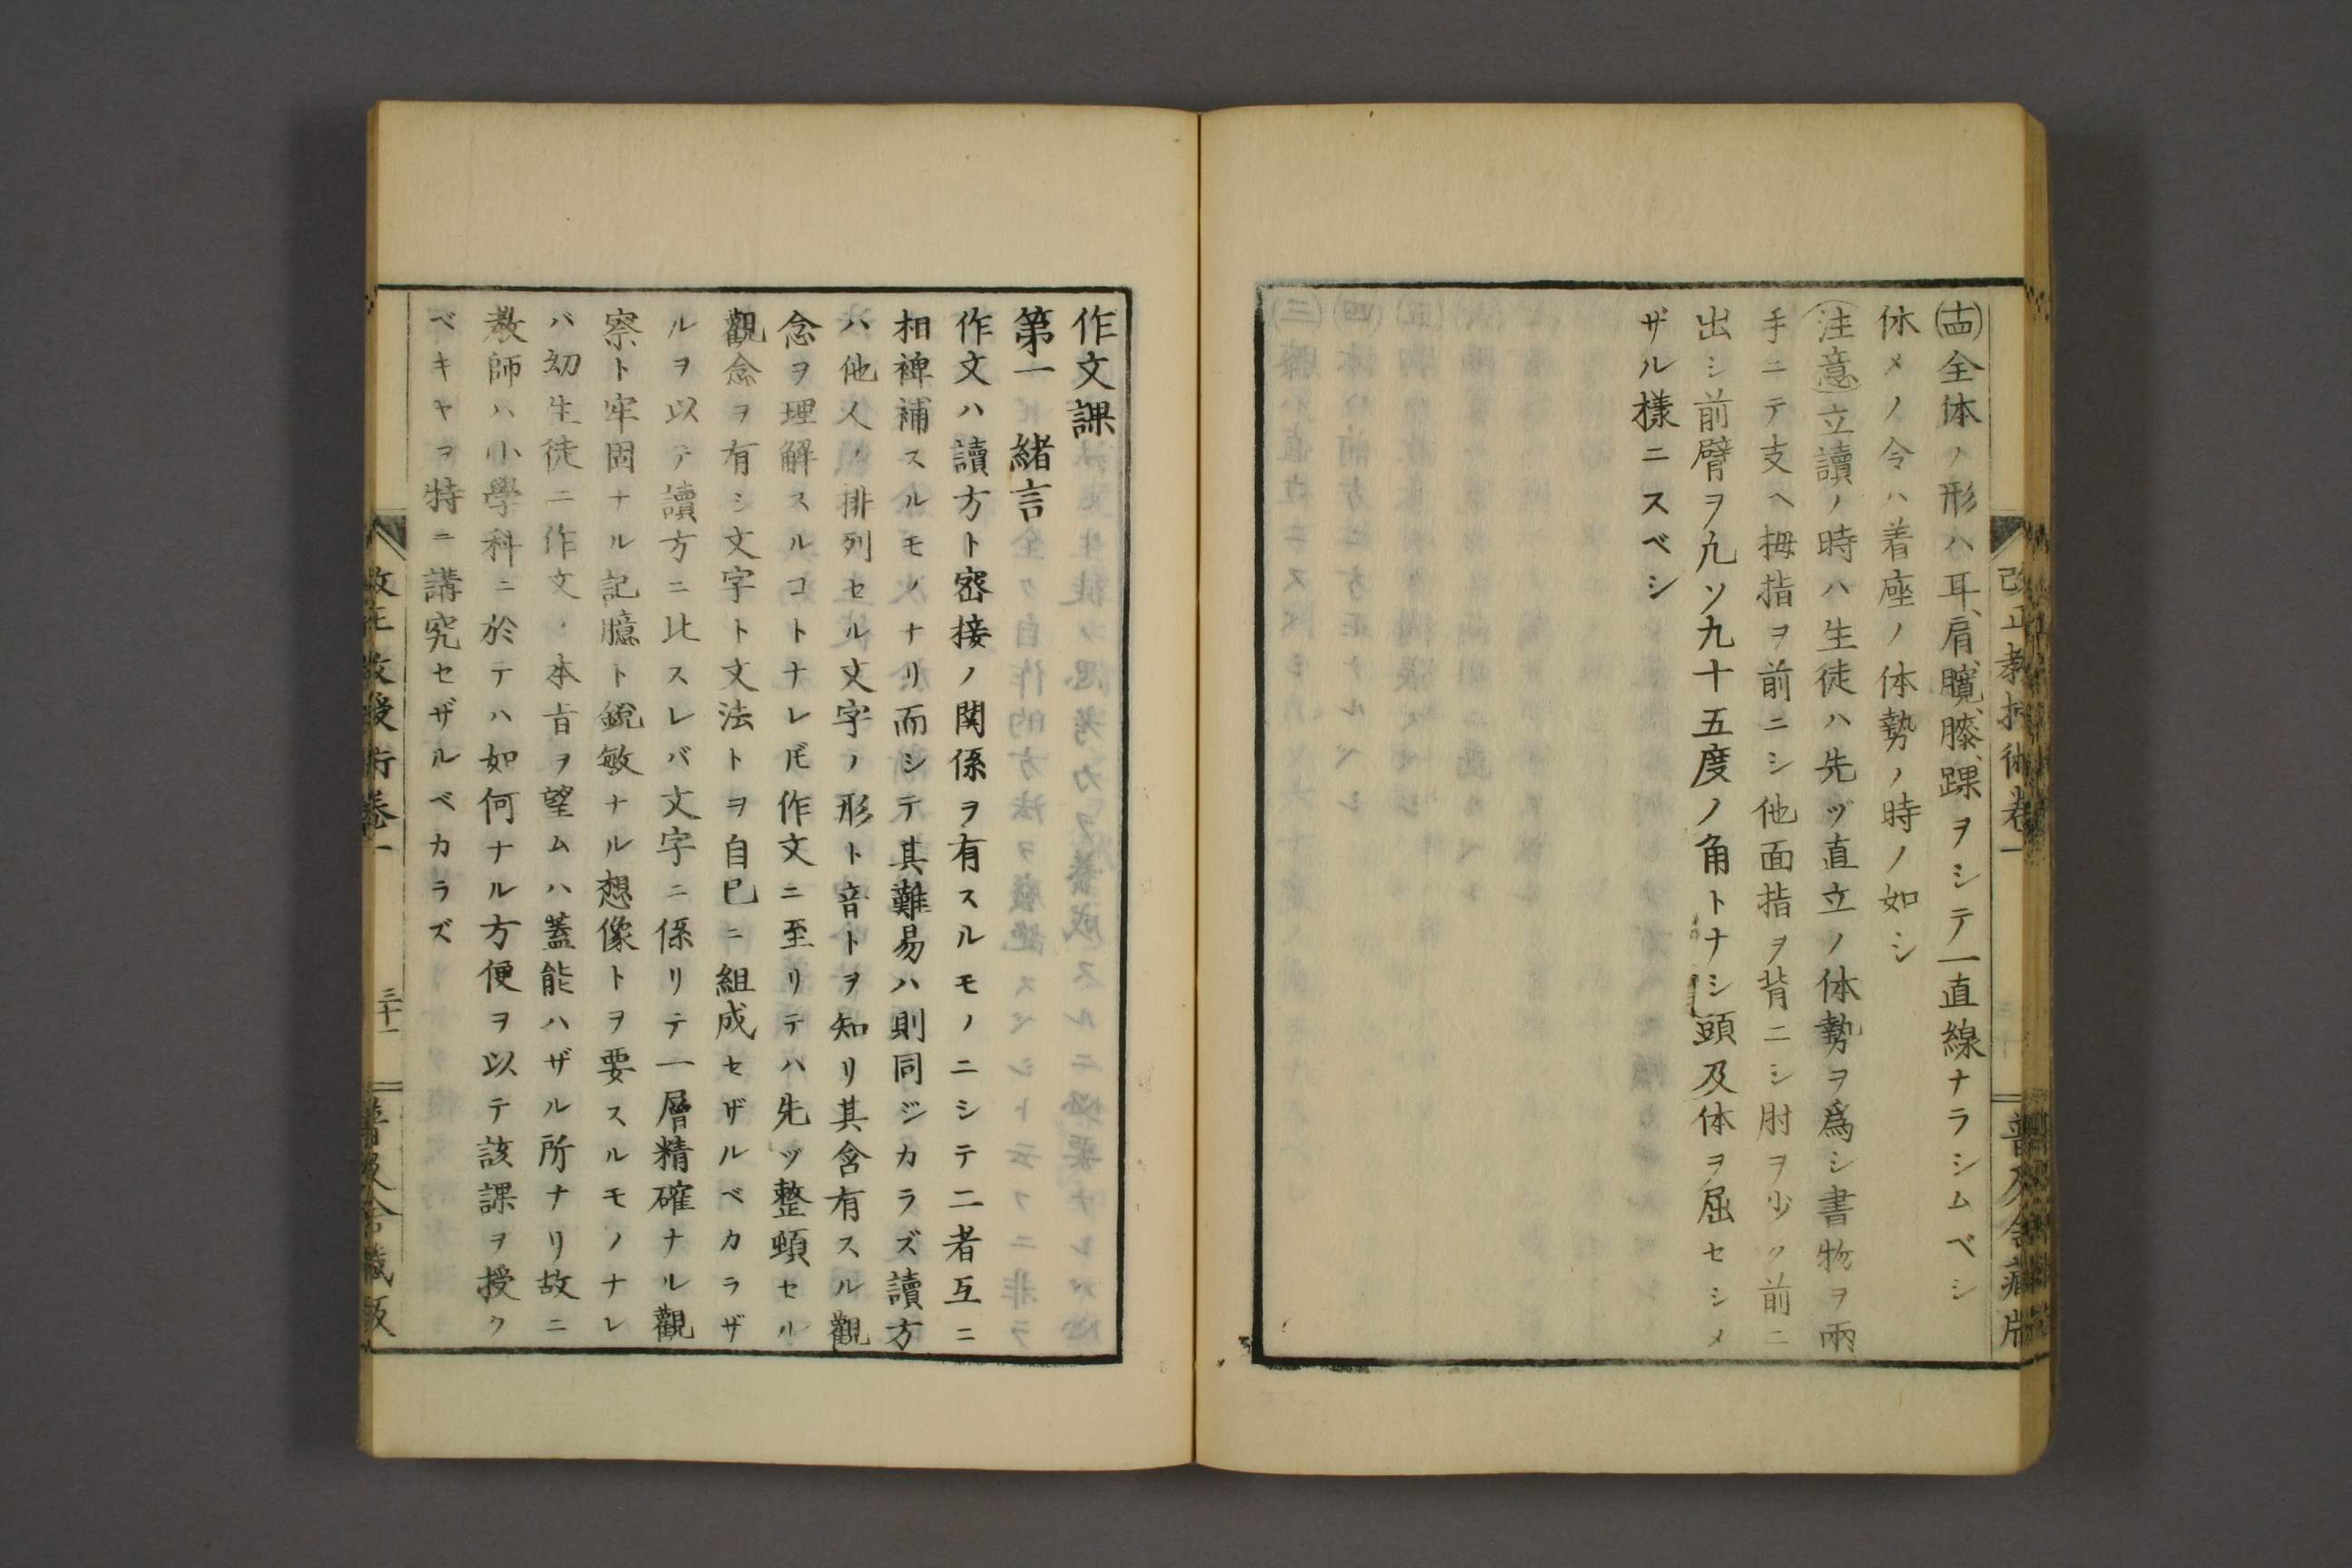 改正教授術卷一
普及舍藏版
(十四)全体ノ形ハ耳、肩、臗、膝、踝ヲシテ一直線ナラシムベシ
休メノ令ハ着座ノ体勢ノ時ノ如シ
(注意)立讀ノ時ハ生徒ハ先ヅ直立ノ体勢ヲ爲シ書物ヲ兩
手ニテ支ヘ拇指ヲ前ニシ他面指ヲ背ニシ肘ヲ少ク前ニ
出シ前臂ヲ凢ソ九十五度ノ角トナシ頭及体ヲ屈セシメ
ザル樣ニスベシ
作文課
第一 緒言
作文ハ讀方ト宻接ノ関係ヲ有スルモノニシテ二者互ニ
相裨補スルモノナリ而シテ其難易ハ則同ジカラズ讀方
ハ他人ノ排列セル文字ノ形ト音トヲ知リ其含有スル觀
念ヲ理解スルコトナレ𪜈作文ニ至リテハ先ヅ整頓セル
觀念ヲ有シ文字ト文法トヲ自己ニ組成セザルベカラザ
ルヲ以テ讀方ニ比スレバ文字ニ係リテ一層精確ナル觀
察ト牢固ナル記臆ト銳敏ナル想像トヲ要スルモノナレ
バ幼生徒ニ作文ノ本旨ヲ望ムハ蓋能ハザル所ナリ故ニ
教師ハ小學科ニ於テハ如何ナル方便ヲ以テ該課ヲ授ク
ベキヤヲ特ニ講究セザルベカラズ
改正教授術卷一
三十一
普及舍藏版